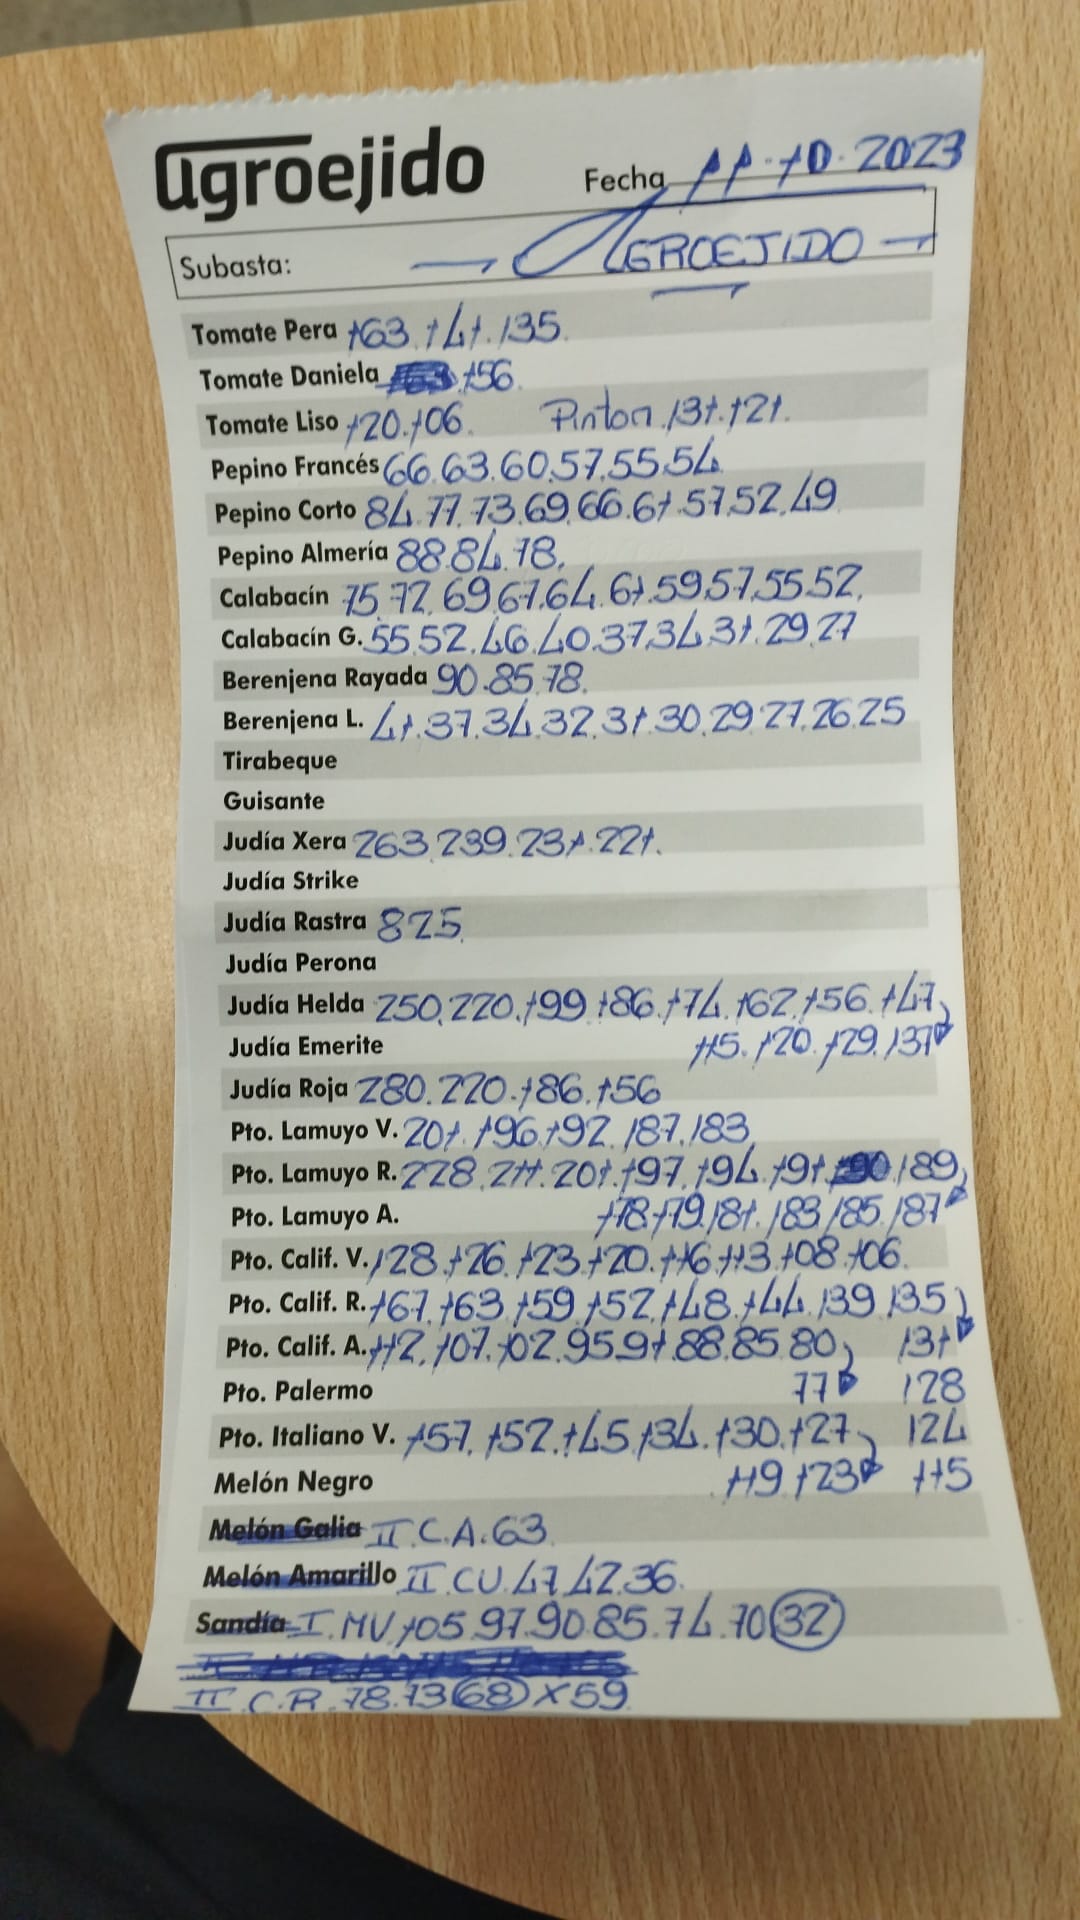 agroejido
Fecha 11-10-2023
Subasta: — AGROEJIDO —
Tomate Pera 163.141.135.
Tomate Daniela 156.
Tomate Liso 120.106. Pinton 131.121.
Pepino Francés 66.63.60.57.55.54
Pepino Corto 84.77.73.69.66.61.57.52.49
Pepino Almería 88.84.78.
Calabacín 75.72.69.67.64.61.59.57.55.52.
Calabacín G. 55.52.46.40.37.34.31.29.27
Berenjena Rayada 90.85.78.
Berenjena L. 41.37.34.32.31.30.29.27.26.25
Tirabeque
Guisante
Judía Xera 263.239.231.221.
Judía Strike
Judía Rastra 825.
Judía Perona
Judía Helda 250.220.199.186.174.162.156.147
Judía Emerite 115.120.129.137
Judía Roja 280.220.186.156
Pto. Lamuyo V. 201.196.192.187.183
Pto. Lamuyo R. 228.211.201.197.194.191.189
Pto. Lamuyo A. 178.179.181.183.185.187
Pto. Calif. V. 128.126.123.120.116.113.108.106.
Pto. Calif. R. 167.163.159.152.148.144.139.135
Pto. Calif. A. 112.107.102.95.91.88.85.80 131
Pto. Palermo 77 128
Pto. Italiano V. 157.152.145.134.130.127 124
Melón Negro 119.123 115
Melón Galia II.C.A.63
Melón Amarillo II.CU.47.42.36.
Sandía I.MV.105.97.90.85.74.70 32
II.C.R.78.73 68 X59